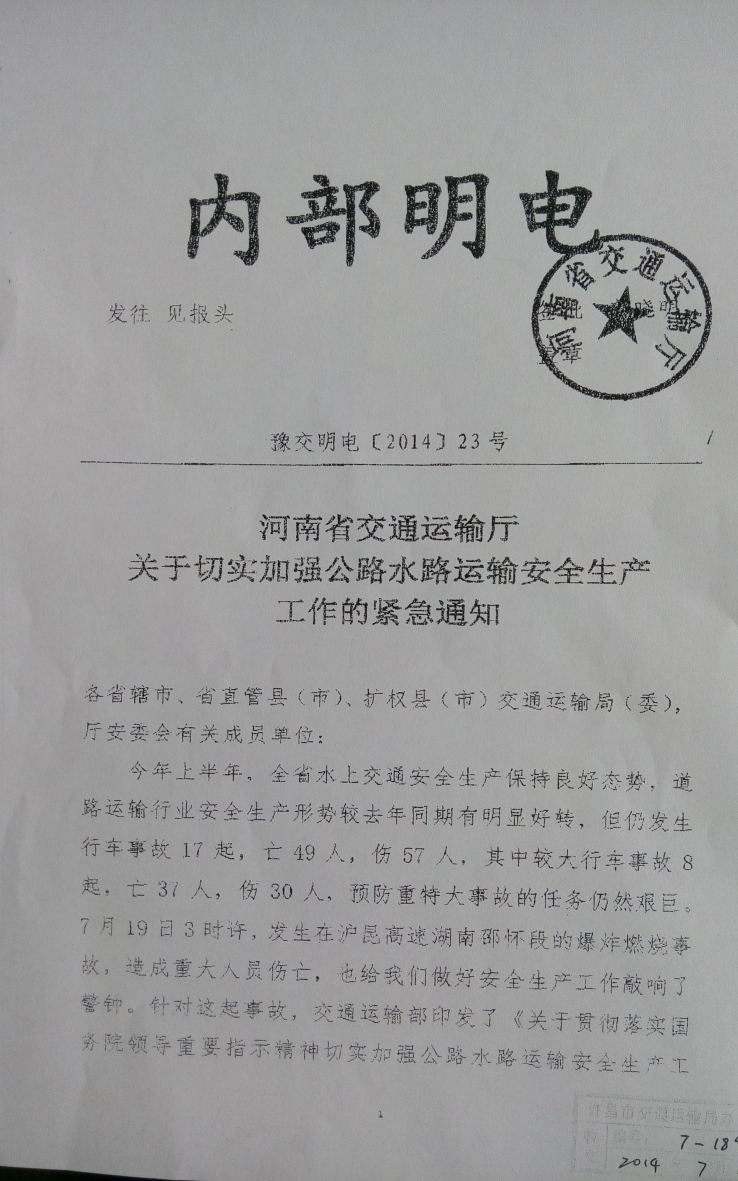 内部明电
发往 见报头
签批 晓明
盖章
河南省交通运输厅
豫交明电〔2014〕23号
河南省交通运输厅
关于切实加强公路水路运输安全生产
工作的紧急通知
各省辖市、省直管县（市）、扩权县（市）交通运输局（委），
厅安委会有关成员单位：
今年上半年，全省水上交通安全生产保持良好态势，道
路运输行业安全生产形势较去年同期有明显好转，但仍发生
行车事故17起，亡49人，伤57人，其中较大行车事故8
起，亡37人，伤30人，预防重特大事故的任务仍然艰巨。
7月19日3时许，发生在沪昆高速湖南邵怀段的爆炸燃烧事
故，造成重大人员伤亡，也给我们做好安全生产工作敲响了
警钟。针对这起事故，交通运输部印发了《关于贯彻落实国
务院领导重要指示精神切实加强公路水路运输安全生产工
1
许昌市交通运输局办
收文 编号：7-18
2014 年 7 月